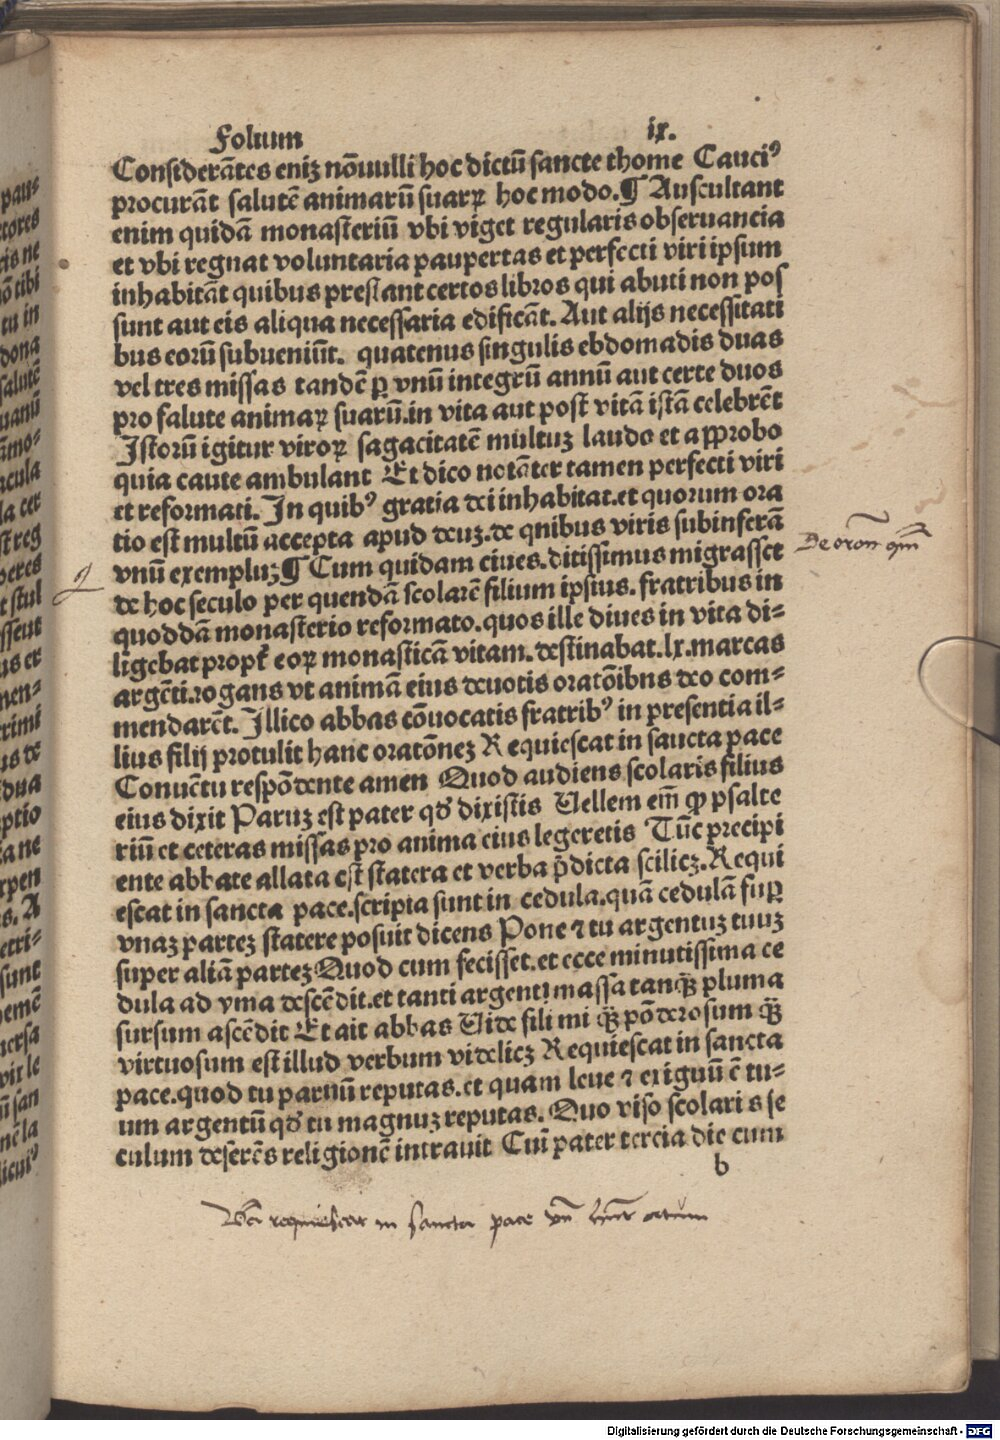 Folium ix.
Considerātes eniꝫ nōnulli hoc dictū sancte thome Cauciꝰ
procurāt salutē animarū suarꝝ hoc modo.¶ Auscultant
enim quidā monasteriū vbi viget regularis obseruancia
et vbi regnat voluntaria paupertas et perfecti viri ipsum
inhabitāt quibus prestant certos libros qui abuti non pos
sunt aut eis aliqua necessaria edificāt. Aut alijs necessitati
bus eorū subueniūt. quatenus singulis ebdomadis duas
vel tres missas tandē ꝑ vnū integrū annū aut certe duos
pro salute animaꝝ suarū.in vita aut post vitā istā celebrēt
Istorū igitur viroꝝ sagacitatē multuꝫ laudo et aꝓprobo
quia caute ambulant Et dico notāter tamen perfecti viri
et reformati. In quibꝰ gratia dei inhabitat.et quorum ora
tio est multū accepta apud deuꝫ.de qnibus viris subinferā
vnū exempluꝫ¶ Cum quidam ciues.ditissimus migrasset
de hoc seculo per quendā scolarē filium ipsius. fratribus in
quoddā monasterio reformato.quos ille diues in vita di-
ligebat propt̄ eoꝝ monasticā vitam.destinabat.lx.marcas
argēti.rogans vt animā eius deuotis oratōibns deo com-
mendarēt. Illico abbas cōuocatis fratribꝰ in presentia il-
lius filij protulit hanc oratōneꝫ Requiescat in sancta pace
Conuētu respōdente amen Quod audiens scolaris filius
eius dixit Paruꝫ est pater qđ dixistis Vellem em̄ ꝙ psalte
riū et ceteras missas pro anima eius legeretis Tūc precipi
ente abbate allata est statera et verba p̄dicta scilicꝫ.Requi
escat in sancta pace.scripta sunt in cedula.quā cedulā suꝑ
vnaꝫ parteꝫ statere posuit dicens Pone ⁊ tu argentuꝫ tuuꝫ
super aliā parteꝫ Quod cum fecisset.et ecce minutissima ce
dula ad yma descēdit.et tanti argenti massa tanꝗ̄ pluma
sursum ascēdit Et ait abbas Vide fili mi ꝗ̄ pōderosum ꝗ̄
virtuosum est illud verbum videlicꝫ Requiescat in sancta
pace.quod tu paruū reputas.et quam leue ⁊ exiguū ē tu-
um argentū qđ tu magnuꝫ reputas. Quo viso scolaris se
culum deserēs religionē intrauit Cui pater tercia die cum
b
requiescat in sancta pace